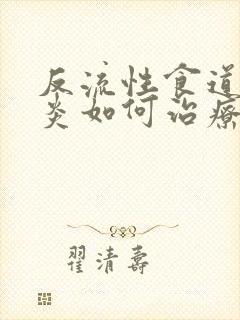 反流性食道
炎如何治疗
翟清寿